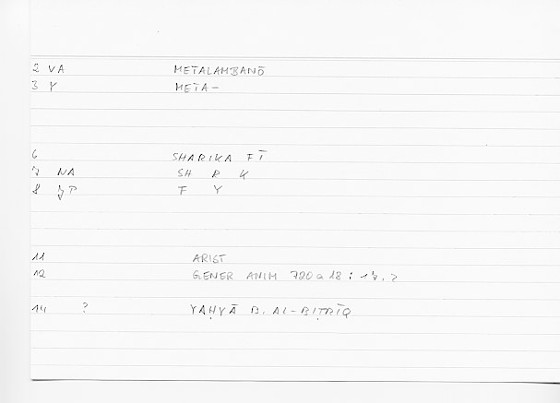 2 VA METALAMBANŌ
3 Y META-
6 SHARIKA FĪ
7 NA SH R K
8 P F Y
11 ARIST
12 GENER ANIM a 18 :
14 ? YAḤYĀ B. AL-BIṬRĪQ